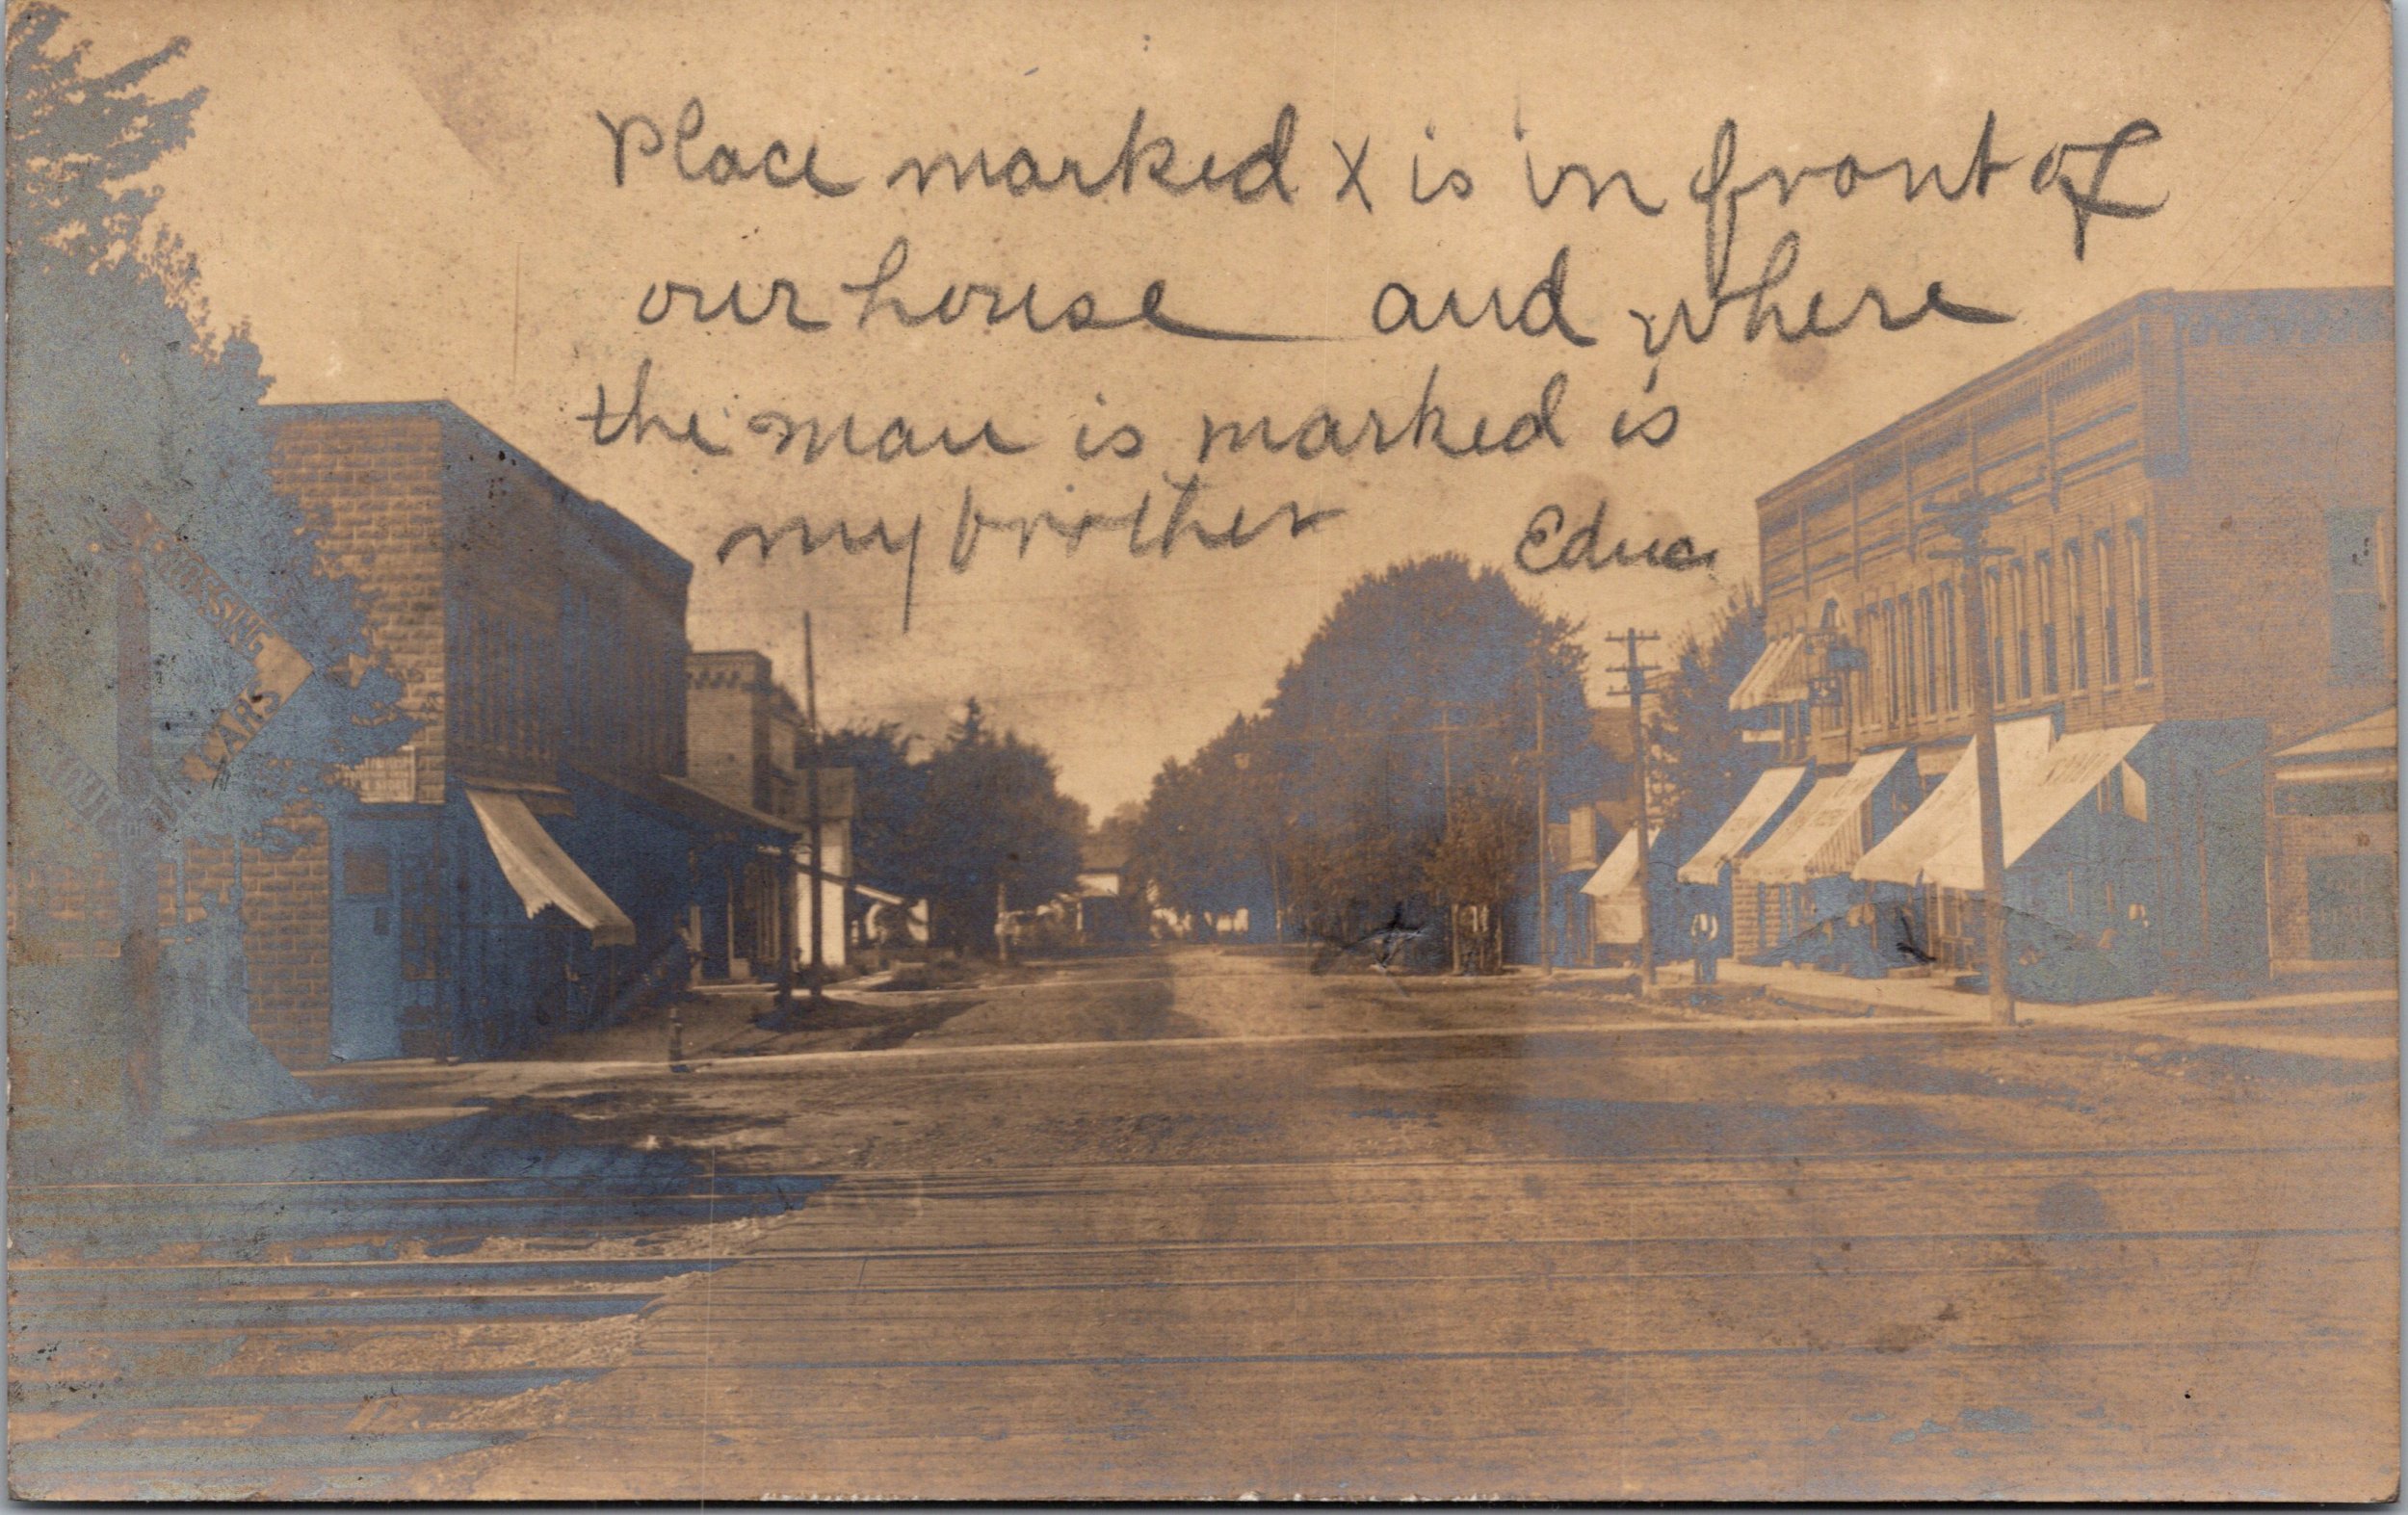 Place marked X is in front of
our house and where
the man is marked is
my brother
CROSSING
CARS